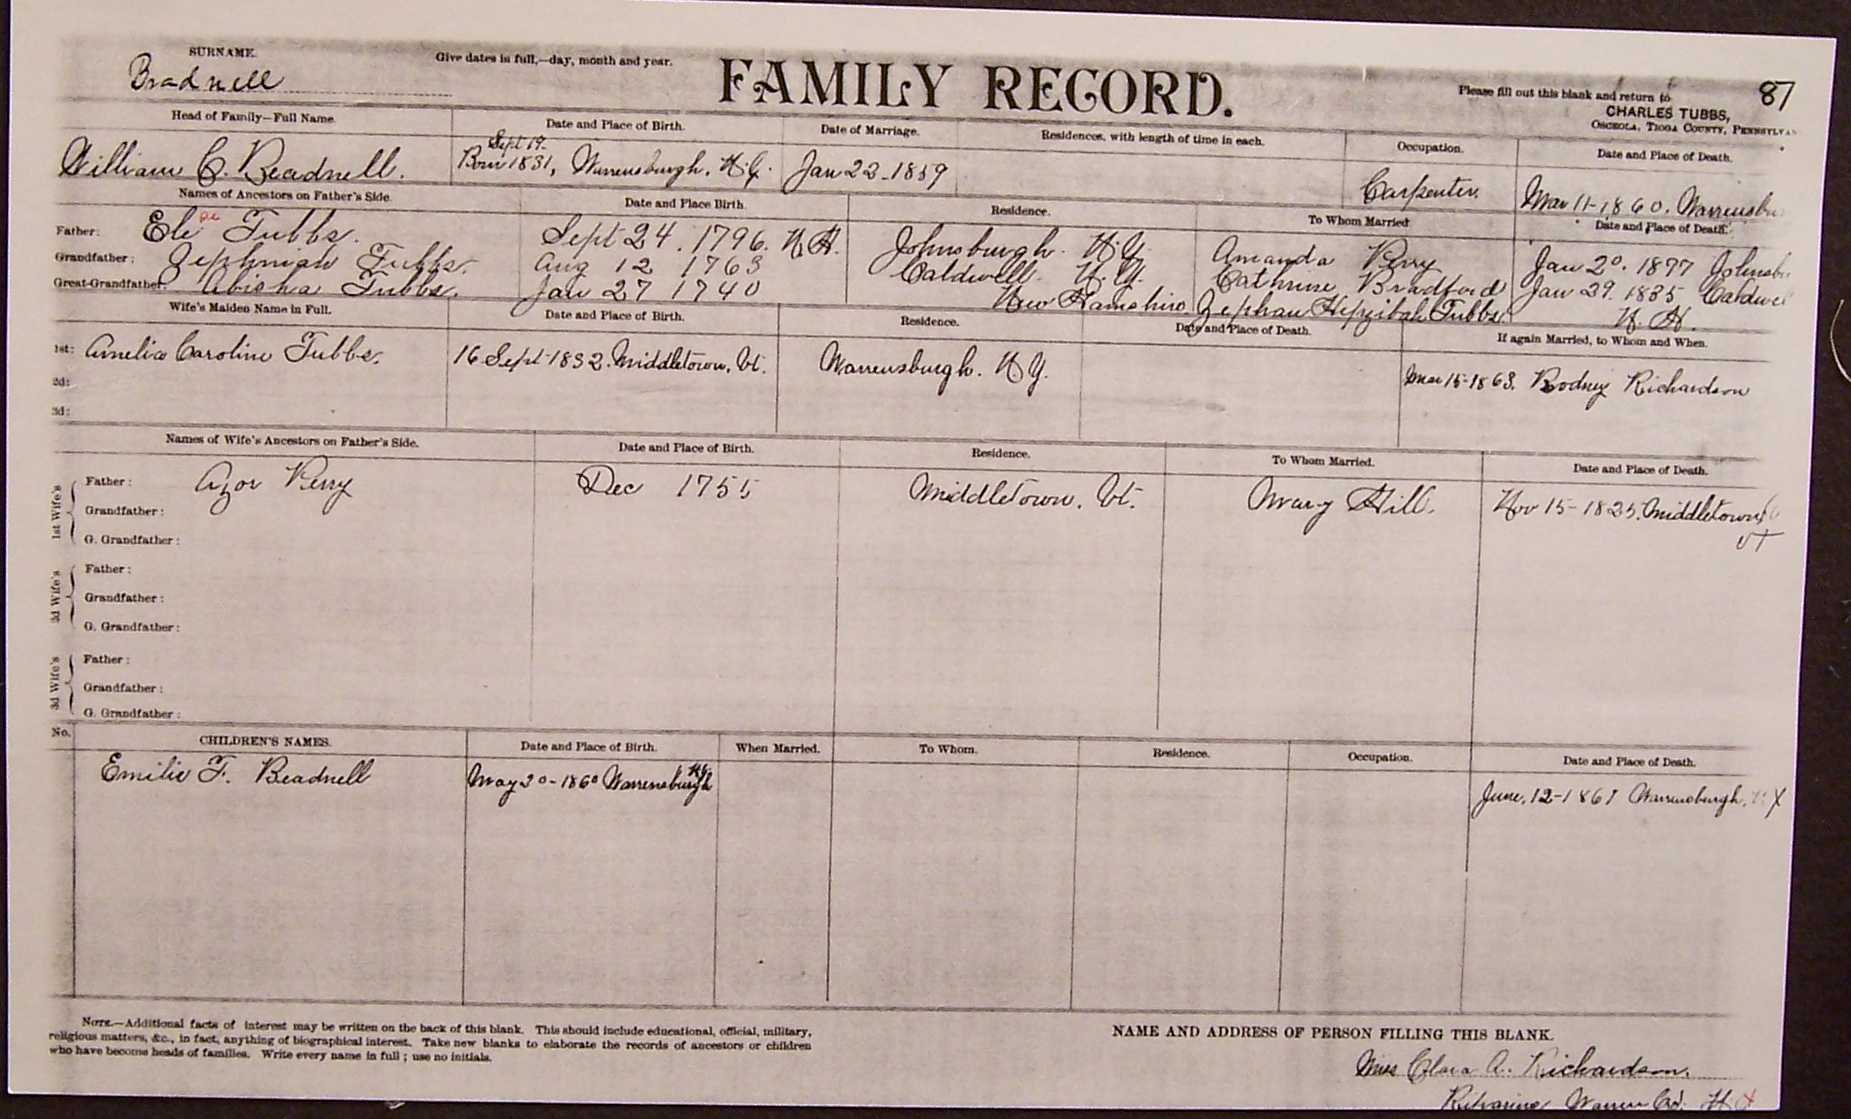 SURNAME.
Bradnell
Give dates in full,—day, month and year.
FAMILY RECORD.
Please fill out this blank and return to
87
CHARLES TUBBS,
OSCEOLA, TIOGA COUNTY, PENNSYLVA
Head of Family—Full Name. Date and Place of Birth. Date of Marriage. Residences, with length of time in each. Occupation. Date and Place of Death.
Sept 19.
William C. Beadnell. Born 1831, Warrensburgh. N.Y. Jan 23-1859 Carpenter. Mar 11-1860. Warrensbu
Names of Ancestors on Father's Side. Date and Place Birth. Residence. To Whom Married Date and Place of Death.
Father: Eli Tubbs. Sept 24. 1796. N.H. Johnsburgh. N.Y. Amanda Perry Jan 20. 1897 Johnsbu
Grandfather: Zephniah Tubbs. Aug 12 1763 Caldwell. N.Y. Cathrine Bradford Jan 29. 1835 Caldwel
Great-Grandfather: Abisha Tubbs. Jan 27 1740 New Hamshire. Zephau Hepzibah Tubbs. N.H.
Wife's Maiden Name in Full. Date and Place of Birth. Residence. Date and Place of Death. If again Married, to Whom and When.
1st: Amelia Caroline Tubbs. 16 Sept-1832. Middletown, Vt. Warrensburgh. N.Y. Mar 15-1863. Rodney Richardson
2d:
3d:
Names of Wife's Ancestors on Father's Side. Date and Place of Birth. Residence. To Whom Married. Date and Place of Death.
1st Wife's
Father: Azor Perry Dec 1755 Middletown, Vt. Mary Hill. Nov 15-1825. Middletown
VT
Grandfather:
G. Grandfather:
2d Wife's
Father:
Grandfather:
G. Grandfather:
3d Wife's
Father:
Grandfather:
G. Grandfather:
No. CHILDREN'S NAMES. Date and Place of Birth. When Married. To Whom. Residence. Occupation. Date and Place of Death.
Emilie F. Beadnell May 20-1860 Warrensburgh NY June, 12-1861 Warrensburgh, NY
NOTE.—Additional facts of interest may be written on the back of this blank. This should include educational, official, military,
religious matters, &c., in fact, anything of biographical interest. Take new blanks to elaborate the records of ancestors or children
who have become heads of families. Write every name in full; use no initials.
NAME AND ADDRESS OF PERSON FILLING THIS BLANK.
Miss Clara A. Richardson.
Warren Co. N Y